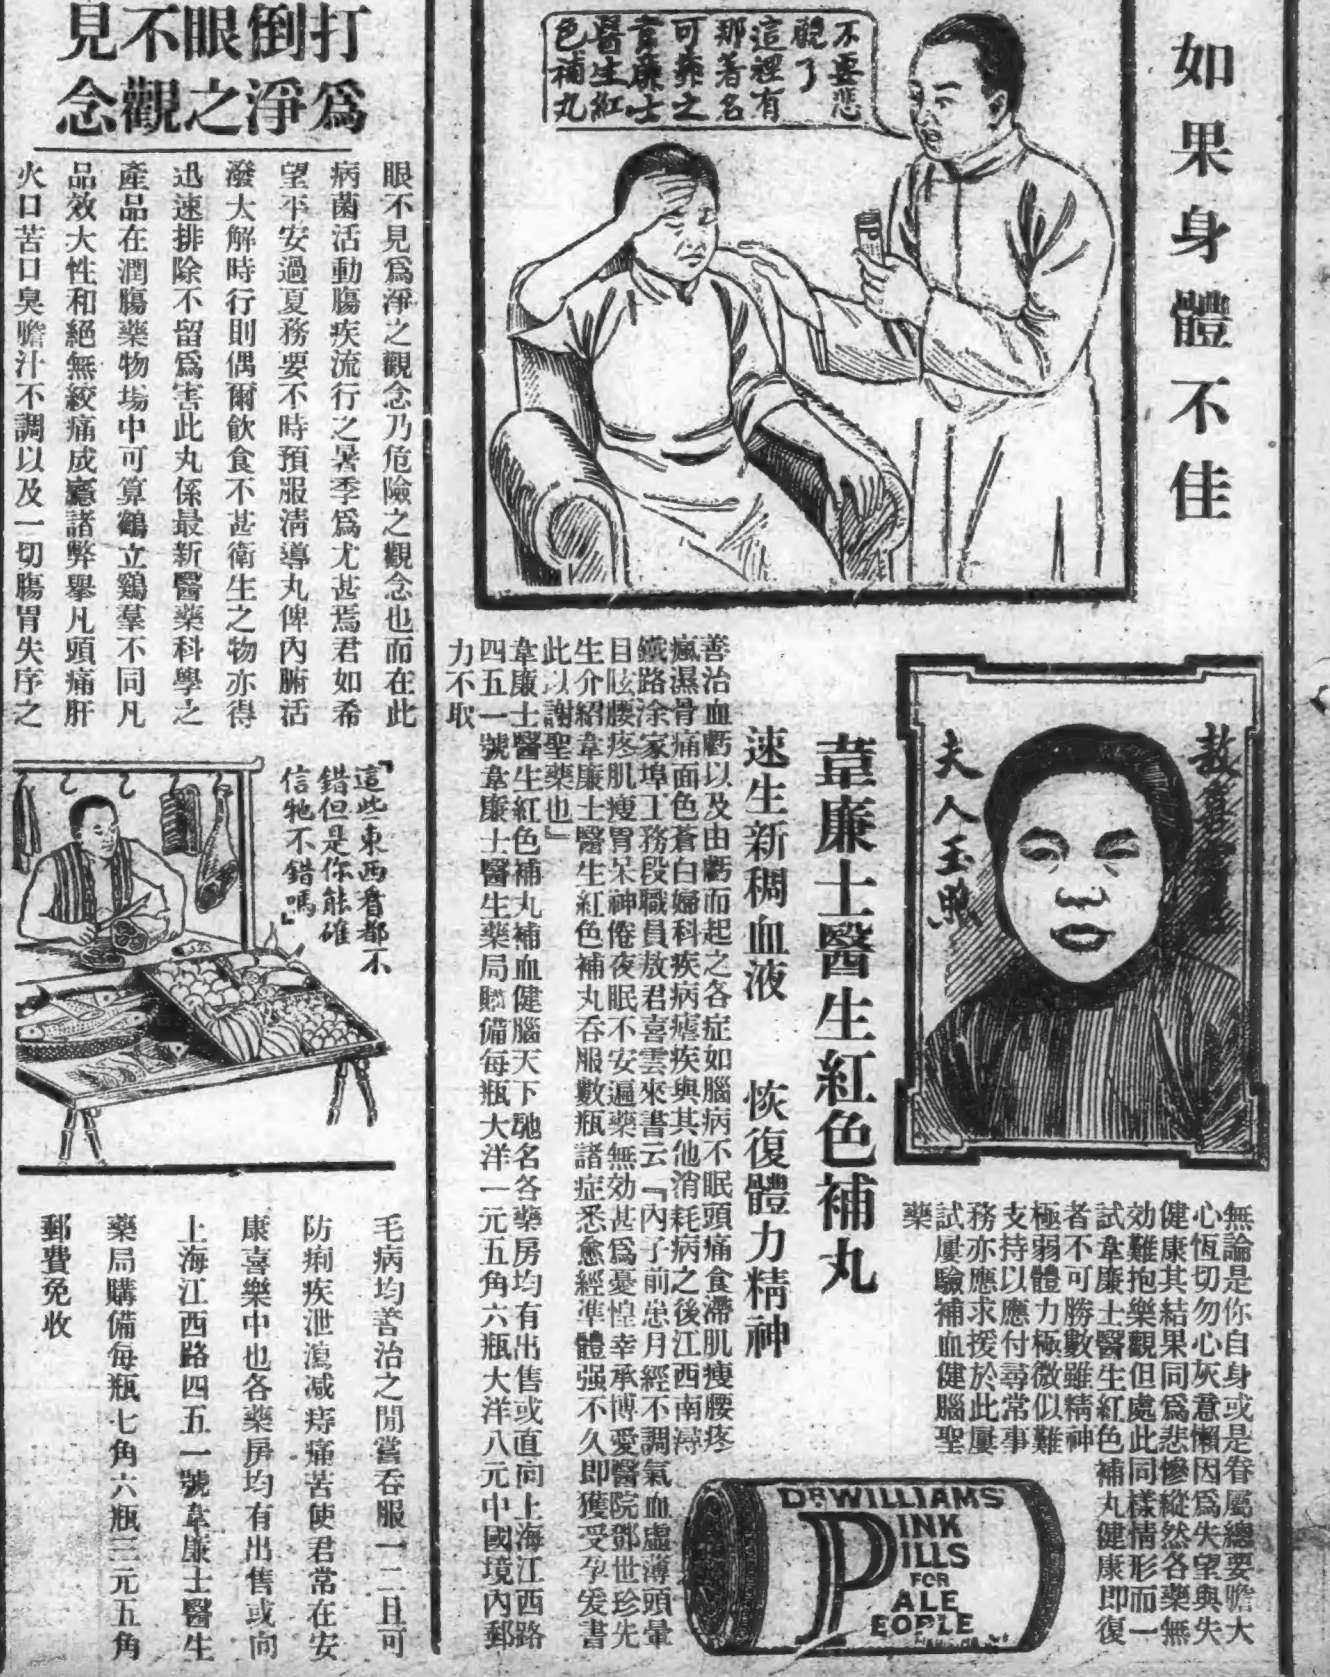 如果身體不佳
不要悲
觀了
這裡有
那著名
可靠之
韋廉士
醫生紅
色補丸
夫人玉照
無論是你自身或是眷屬總要膽大
心恆切勿心灰意懶因爲失望與失
健康其結果同爲悲慘縱然各藥無
効難抱樂觀但處此同樣情形而一
試韋廉士醫生紅色補丸健康即復
者不可勝數雖精神
極弱體力極微似難
支持以應付尋常事
務亦應求援於此屢
試屢驗補血健腦聖
藥
韋廉士醫生紅色補丸
速生新稠血液 恢復體力精神
善治血虧以及由虧而起之各症如腦病不眠頭痛食滯肌瘦腰疼
瘋濕骨痛面色蒼白婦科疾病瘧疾與其他消耗病之後江西南潯
鐵路涂家埠工務段職員敖君喜雲來書云『內子前患月經不調氣血虛薄頭暈
目眩腰疼肌瘦胃呆神倦夜眠不安遍藥無効甚爲憂惶幸承博愛醫院鄧世珍先
生介紹韋廉士醫生紅色補丸吞服數瓶諸症悉愈經準體强不久即獲受孕爰書
此以謝聖藥也』
韋廉士醫生紅色補丸補血健腦天下馳名各藥房均有出售或直向上海江西路
四五一號韋廉士醫生藥局購備每瓶大洋一元五角六瓶大洋八元中國境內郵
力不取
DR WILLIAMS'
PINK
PILLS
FOR
PALE
PEOPLE
打倒眼不見
爲淨之觀念
眼不見爲淨之觀念乃危險之觀念也而在此
病菌活動腸疾流行之暑季爲尤甚焉君如希
望平安過夏務要不時預服淸導丸俾內腑活
潑大解時行則偶爾飲食不甚衛生之物亦得
迅速排除不留爲害此丸係最新醫藥科學之
產品在潤腸藥物塲中可算鶴立鷄羣不同凡
品效大性和絕無絞痛成癮諸弊擧凡頭痛肝
火口苦口臭膽汁不調以及一切腸胃失序之
「這些東西看都不
錯但是你能確
信牠不錯嗎」
毛病均善治之閒嘗吞服一二且可
防痢疾泄瀉减痔痛苦使君常在安
康喜樂中也各藥房均有出售或向
上海江西路四五一號韋廉士醫生
藥局購備每瓶七角六瓶三元五角
郵費免收